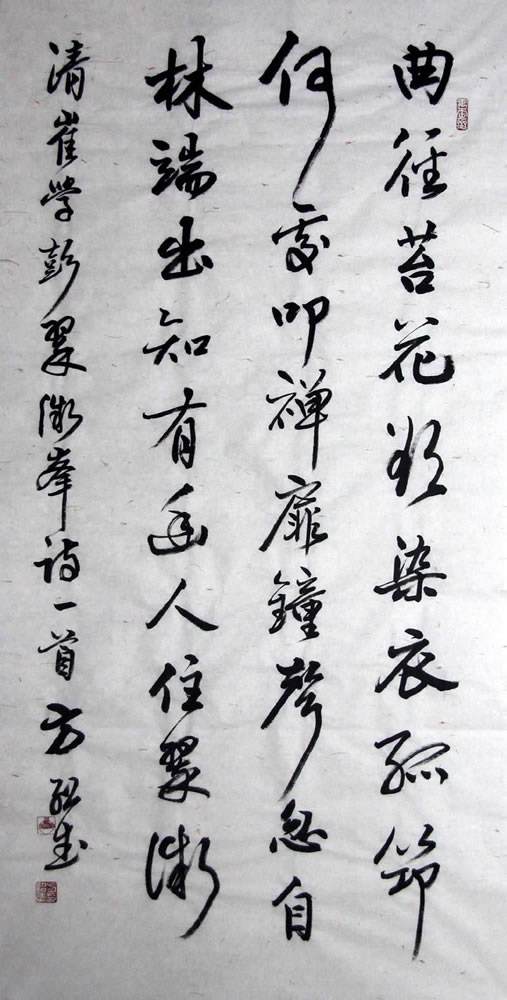 曲径苔花欲染衣孤筇
何處叩禅扉鐘聲忽自
林端出知有幽人住翠微
清崔学彭翠微峯诗一首方